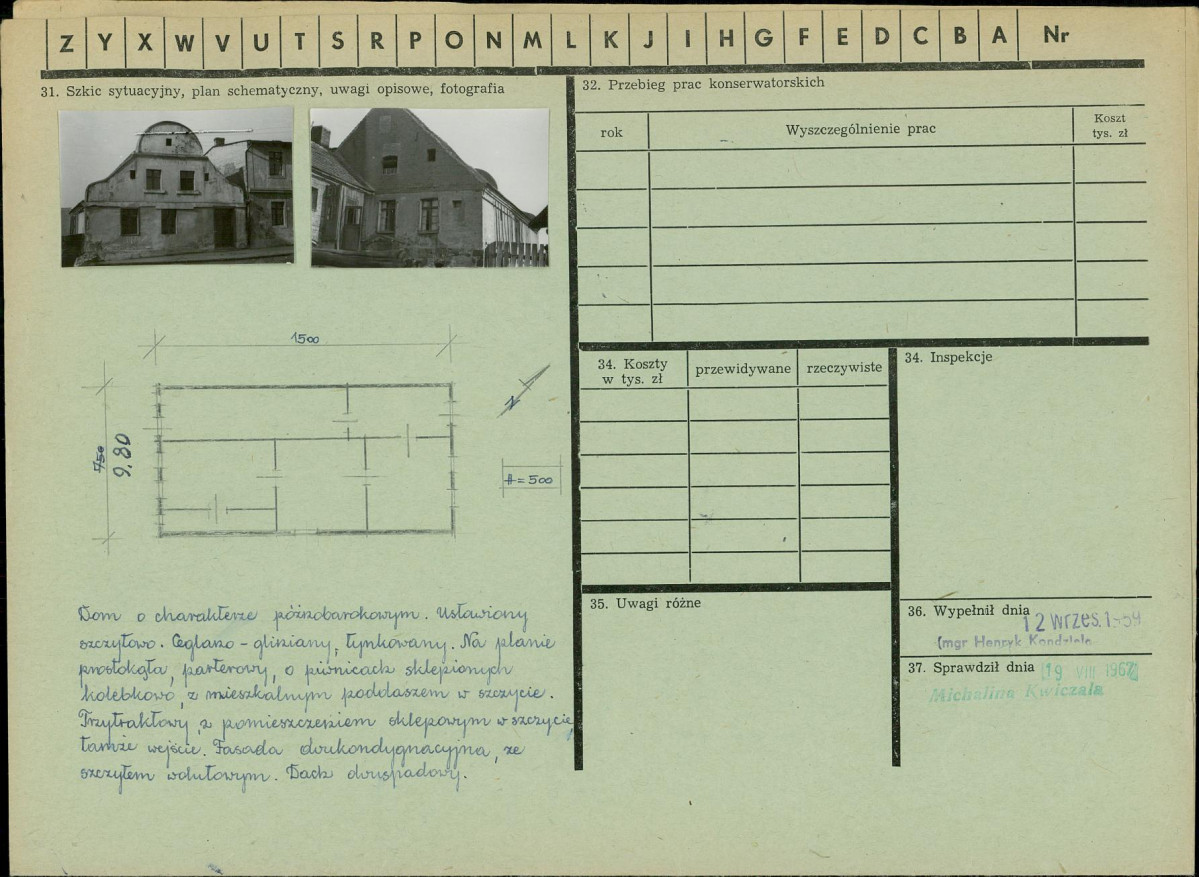 Z Y X W V U T S R P O N M L K J I H G F E D C B A Nr
31. Szkic sytuacyjny, plan schematyczny, uwagi opisowe, fotografia
1500
750
9,80
N
H = 500
Dom o charakterze późnobarokowym. Ustawiony
szczytowo. Ceglano - gliniany, tynkowany. Na planie
prostokąta, parterowy, o piwnicach sklepionych
kolebkowo, z mieszkalnym poddaszem w szczycie.
Trzytraktowy, z pomieszczeniem sklepowym w szczycie,
tamże wejście. Fasada dwukondygnacyjna, ze
szczytem wolutowym. Dach dwuspadowy.
32. Przebieg prac konserwatorskich
rok
Wyszczególnienie prac
Koszt
tys. zł
34. Koszty
w tys. zł
przewidywane
rzeczywiste
34. Inspekcje
35. Uwagi różne
36. Wypełnił dnia
12 wrzes. 1959
(mgr Henryk Kondziela
37. Sprawdził dnia
19 VIII 1967
Michalina Kwiczala